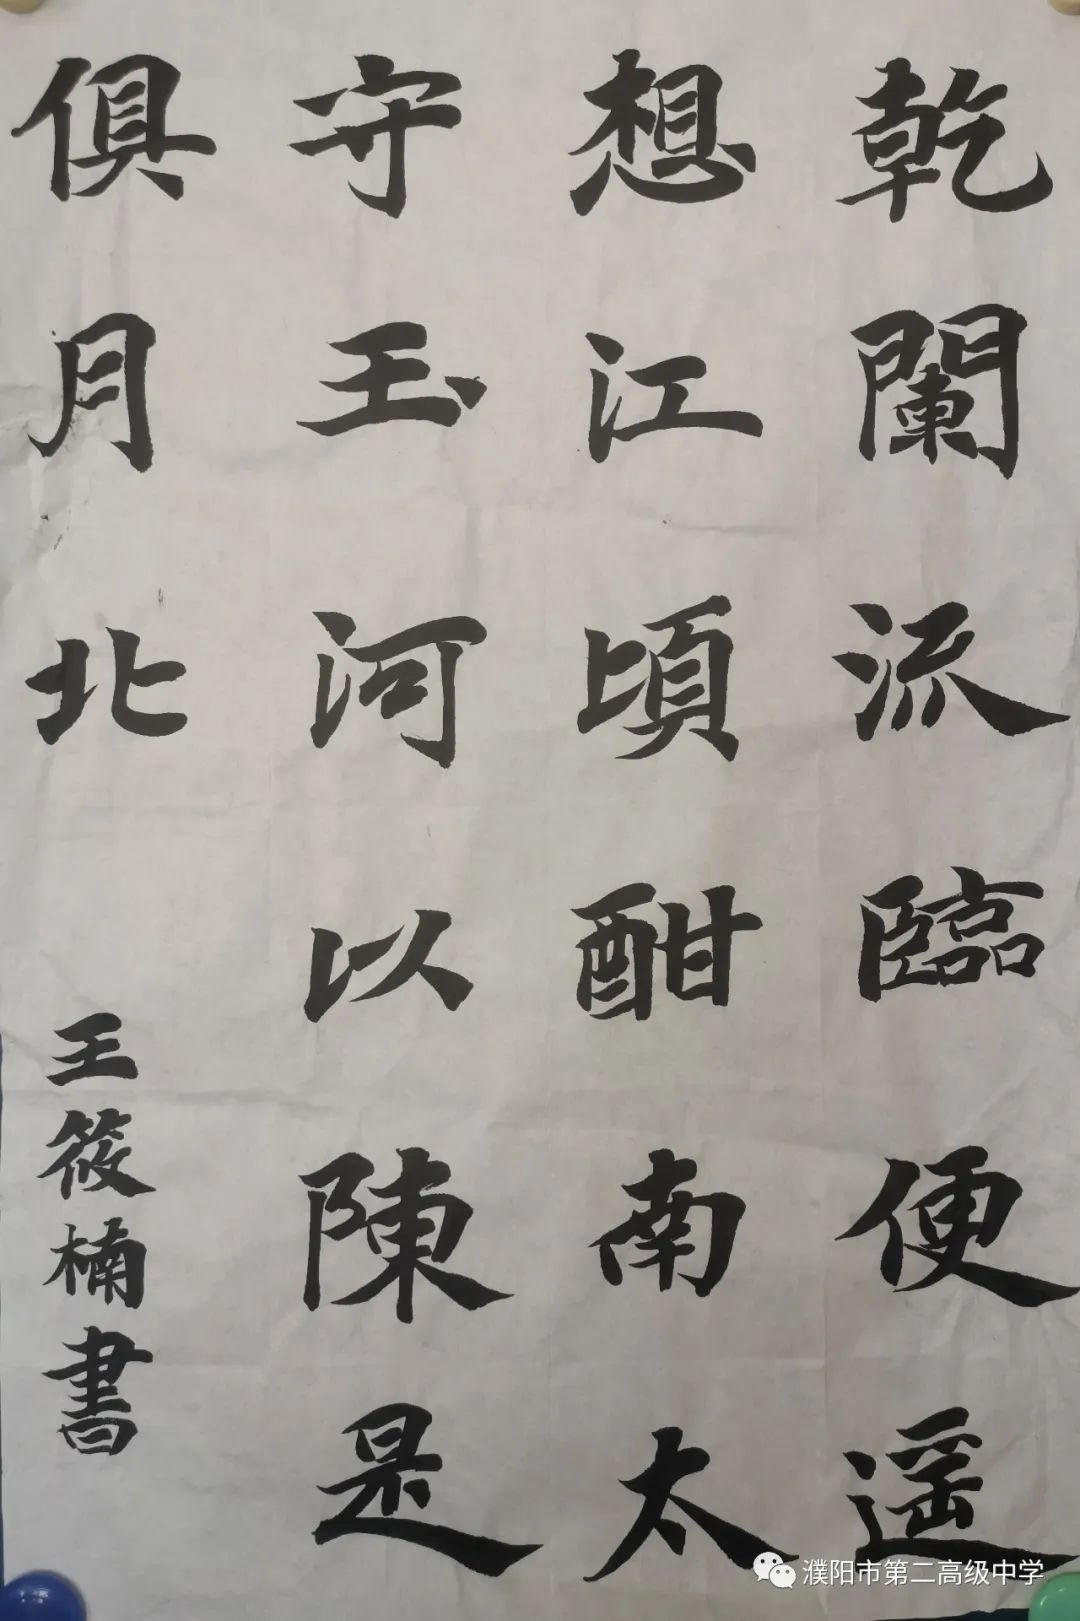 乾闌流臨便遥
想江頃酣南太
守玉河以陳是
俱月北
王筱楠書
濮阳市第二高级中学